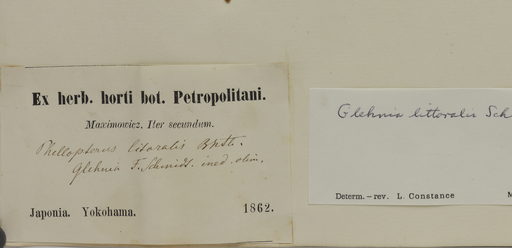 Ex herb. horti bot. Petropolitani.
Maximowicz. Iter secundum.
Phellopterus litoralis Bnth.
Glehnia F. Schmidt. ined. olim.
Japonia. Yokohama. 1862.
Glehnia littoralis Sch
Determ. – rev. L. Constance M